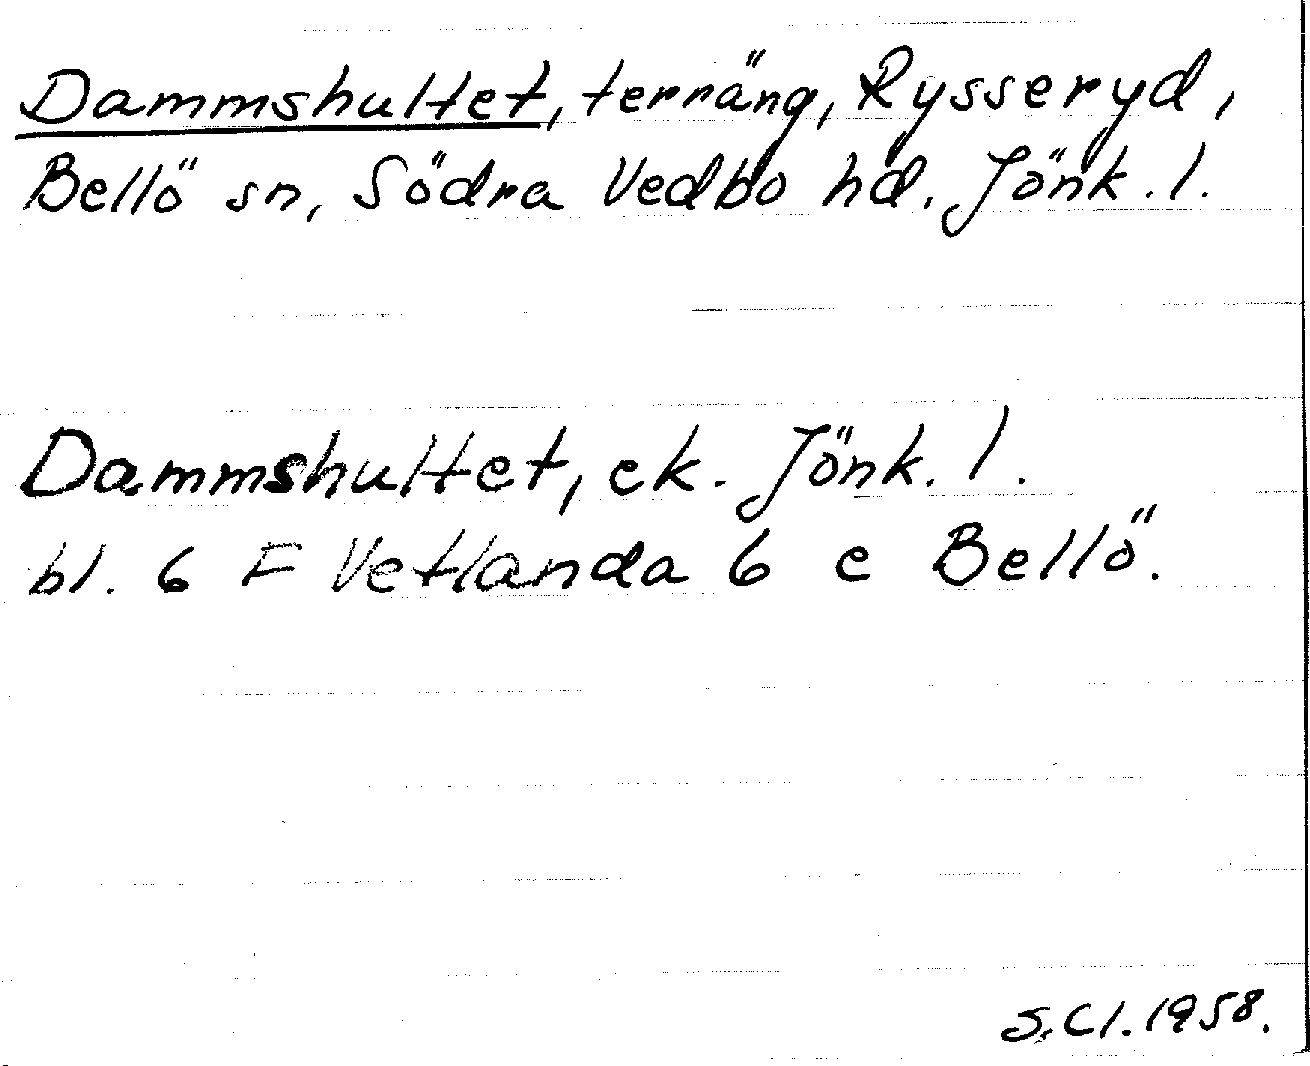 Dammshultet, terräng, Rysseryd,
Bellö sn, Södra Vedbo hd. Jönk. l.
Dammshultet, ek. Jönk. l.
bl. 6 F Vetlanda 6 e Bellö.
S. Cl. 1958.